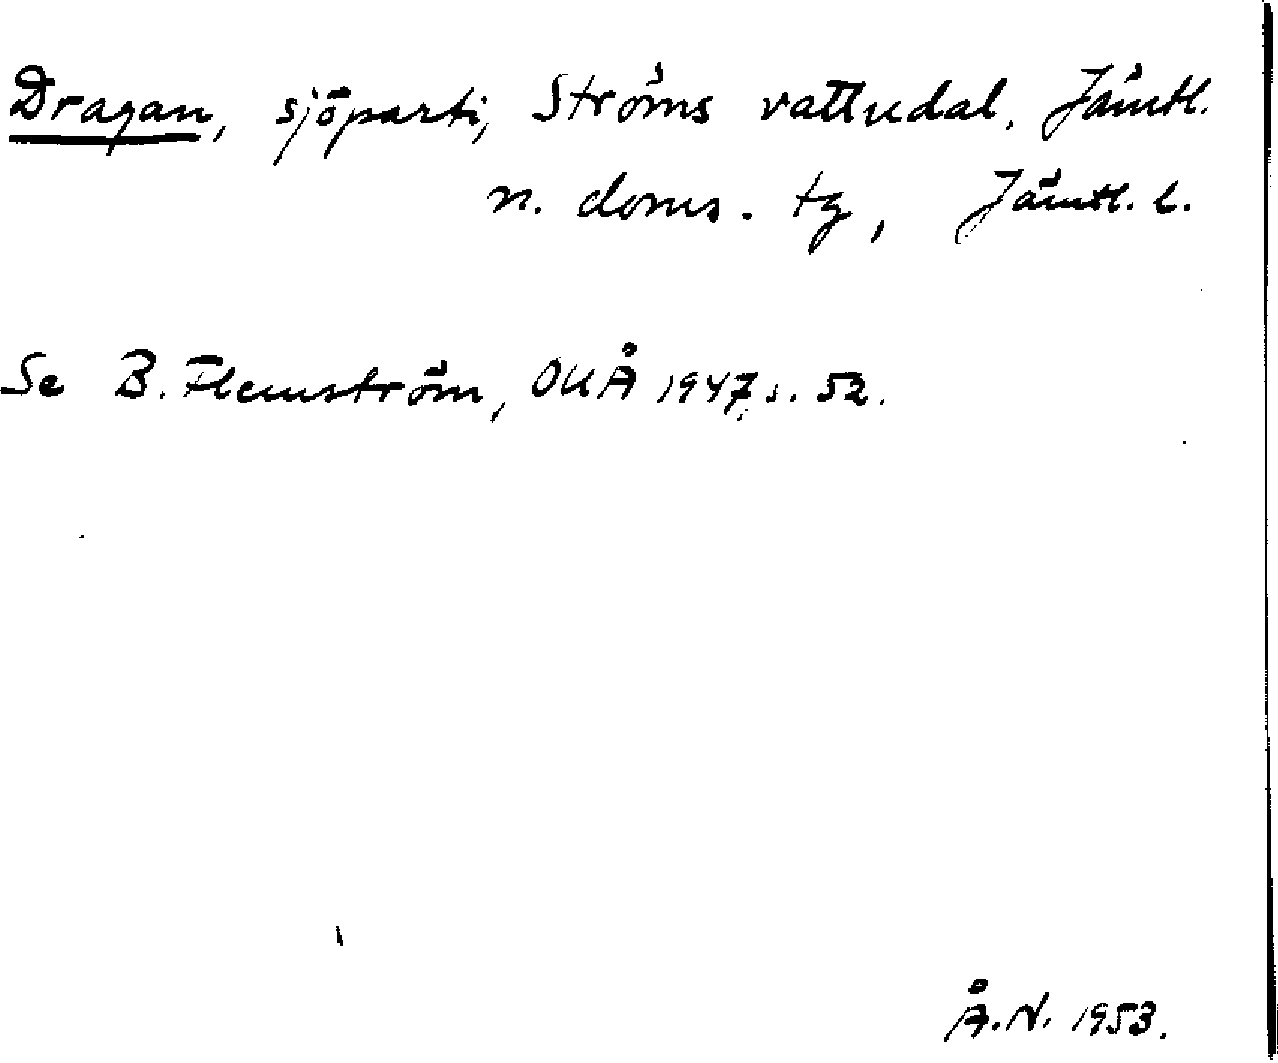 Dragan, sjöparti, Ströms vattudal, Jämtl.
n. doms. tg, Jämtl. l.
Se B. Flemström, OUÅ 1947, s. 52.
Å.N. 1953.